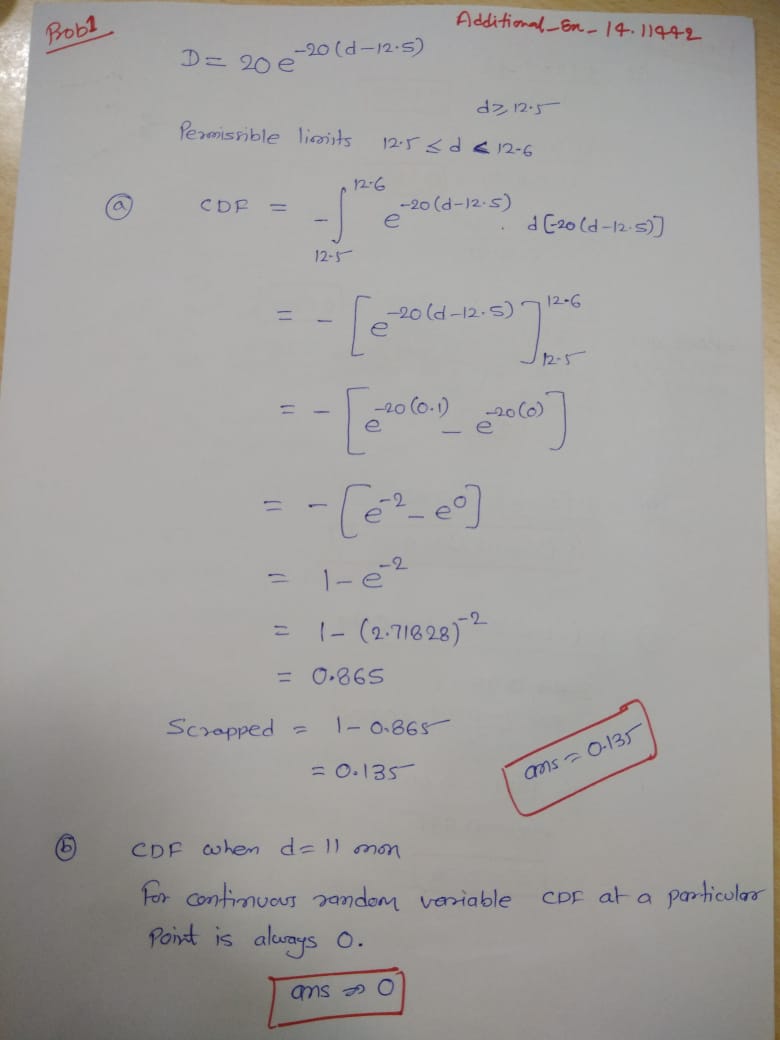 Prob1
Additional_En_14.11442
D = 20 e^-20(d-12.5)
d ≥ 12.5
Permissible limits 12.5 ≤ d < 12.6
(a) CDF = - ∫_12.5^12.6 e^-20(d-12.5) . d[-20(d-12.5)]
= - [e^-20(d-12.5)]_12.5^12.6
= - [e^-20(0.1) - e^-20(0)]
= - [e^-2 - e^0]
= 1 - e^-2
= 1 - (2.71828)^-2
= 0.865
Scrapped = 1 - 0.865
= 0.135
ans = 0.135
(b) CDF when d = 11 mm
For continuous random variable CDF at a particular
Point is always 0.
ans ⇒ 0